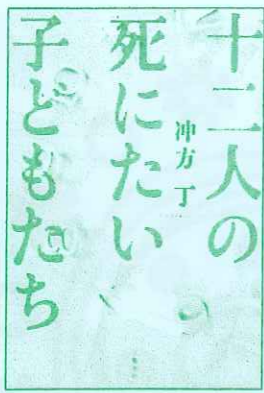 十二人の
死にたい
子どもたち
冲方 丁